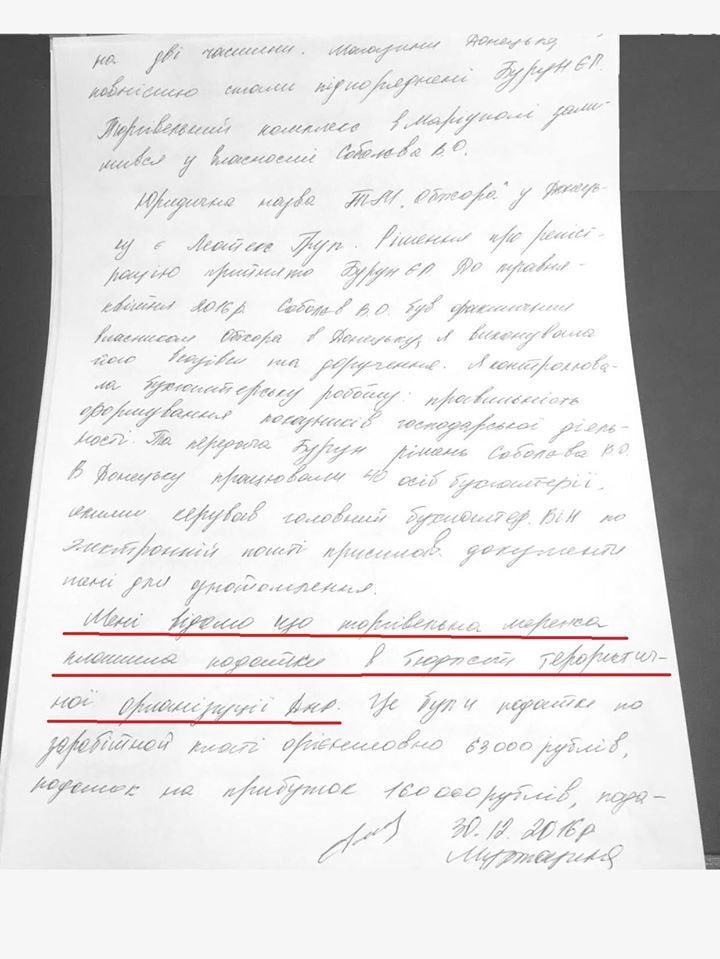 на дві частини. Магазини Донецька
повністю стали підпорядковані Бурун Є.П.
Торгівельний комплекс в Маріуполі зали-
шився у власності Соболєва В.О.
Юридична назва ТМ "Обжора" у Донець-
ку є Групп. Рішення про реєст-
рацію прийнято Бурун ЄП До травня-
квітня 2016р Соболєв В.О. був фактичним
власником Обжора в Донецьку, Я виконувала
його вказівки та доручення. Я контролюва-
ла бухгалтерську роботу: правильність
формування показників господарської діяль-
ності. Та передача Бурун рішень Соболєва В.О.
В Донецьку працювали 40 осіб бухгалтерії,
якими керував головний бухгалтер. Він по
электронній пошті присилав документи
мені для
Мені відомо що торгівельна мережа
платила податки в бюджет терористич-
ної організації днр. Це були податки по
заробітной платі орієнтовно 63000 рублів,
податок на прибуток 160 000 рублів, пода-
30.12.2016р